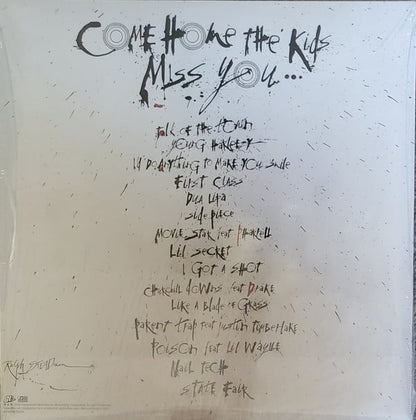 COME HOME THE KIDS
MISS YOU...
TALK OF THE TOWN
YOUNG HARLEEZY
I'LL DO ANYTHING TO MAKE YOU SMILE
FIRST CLASS
DUA LIPA
SIDE PIECE
MOVIE STAR feat PHARRELL
LIL SECRET
I GOT A SHOT
CHURCHILL DOWNS feat DRAKE
LIKE A BLADE OF GRASS
PARENT TRAP feat JUSTIN TIMBERLAKE
POISON feat LIL WAYNE
NAIL TECH
STATE FAIR
Ralph STEADman